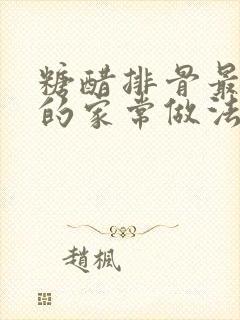 糖醋排骨最
的家常做法
趙楓